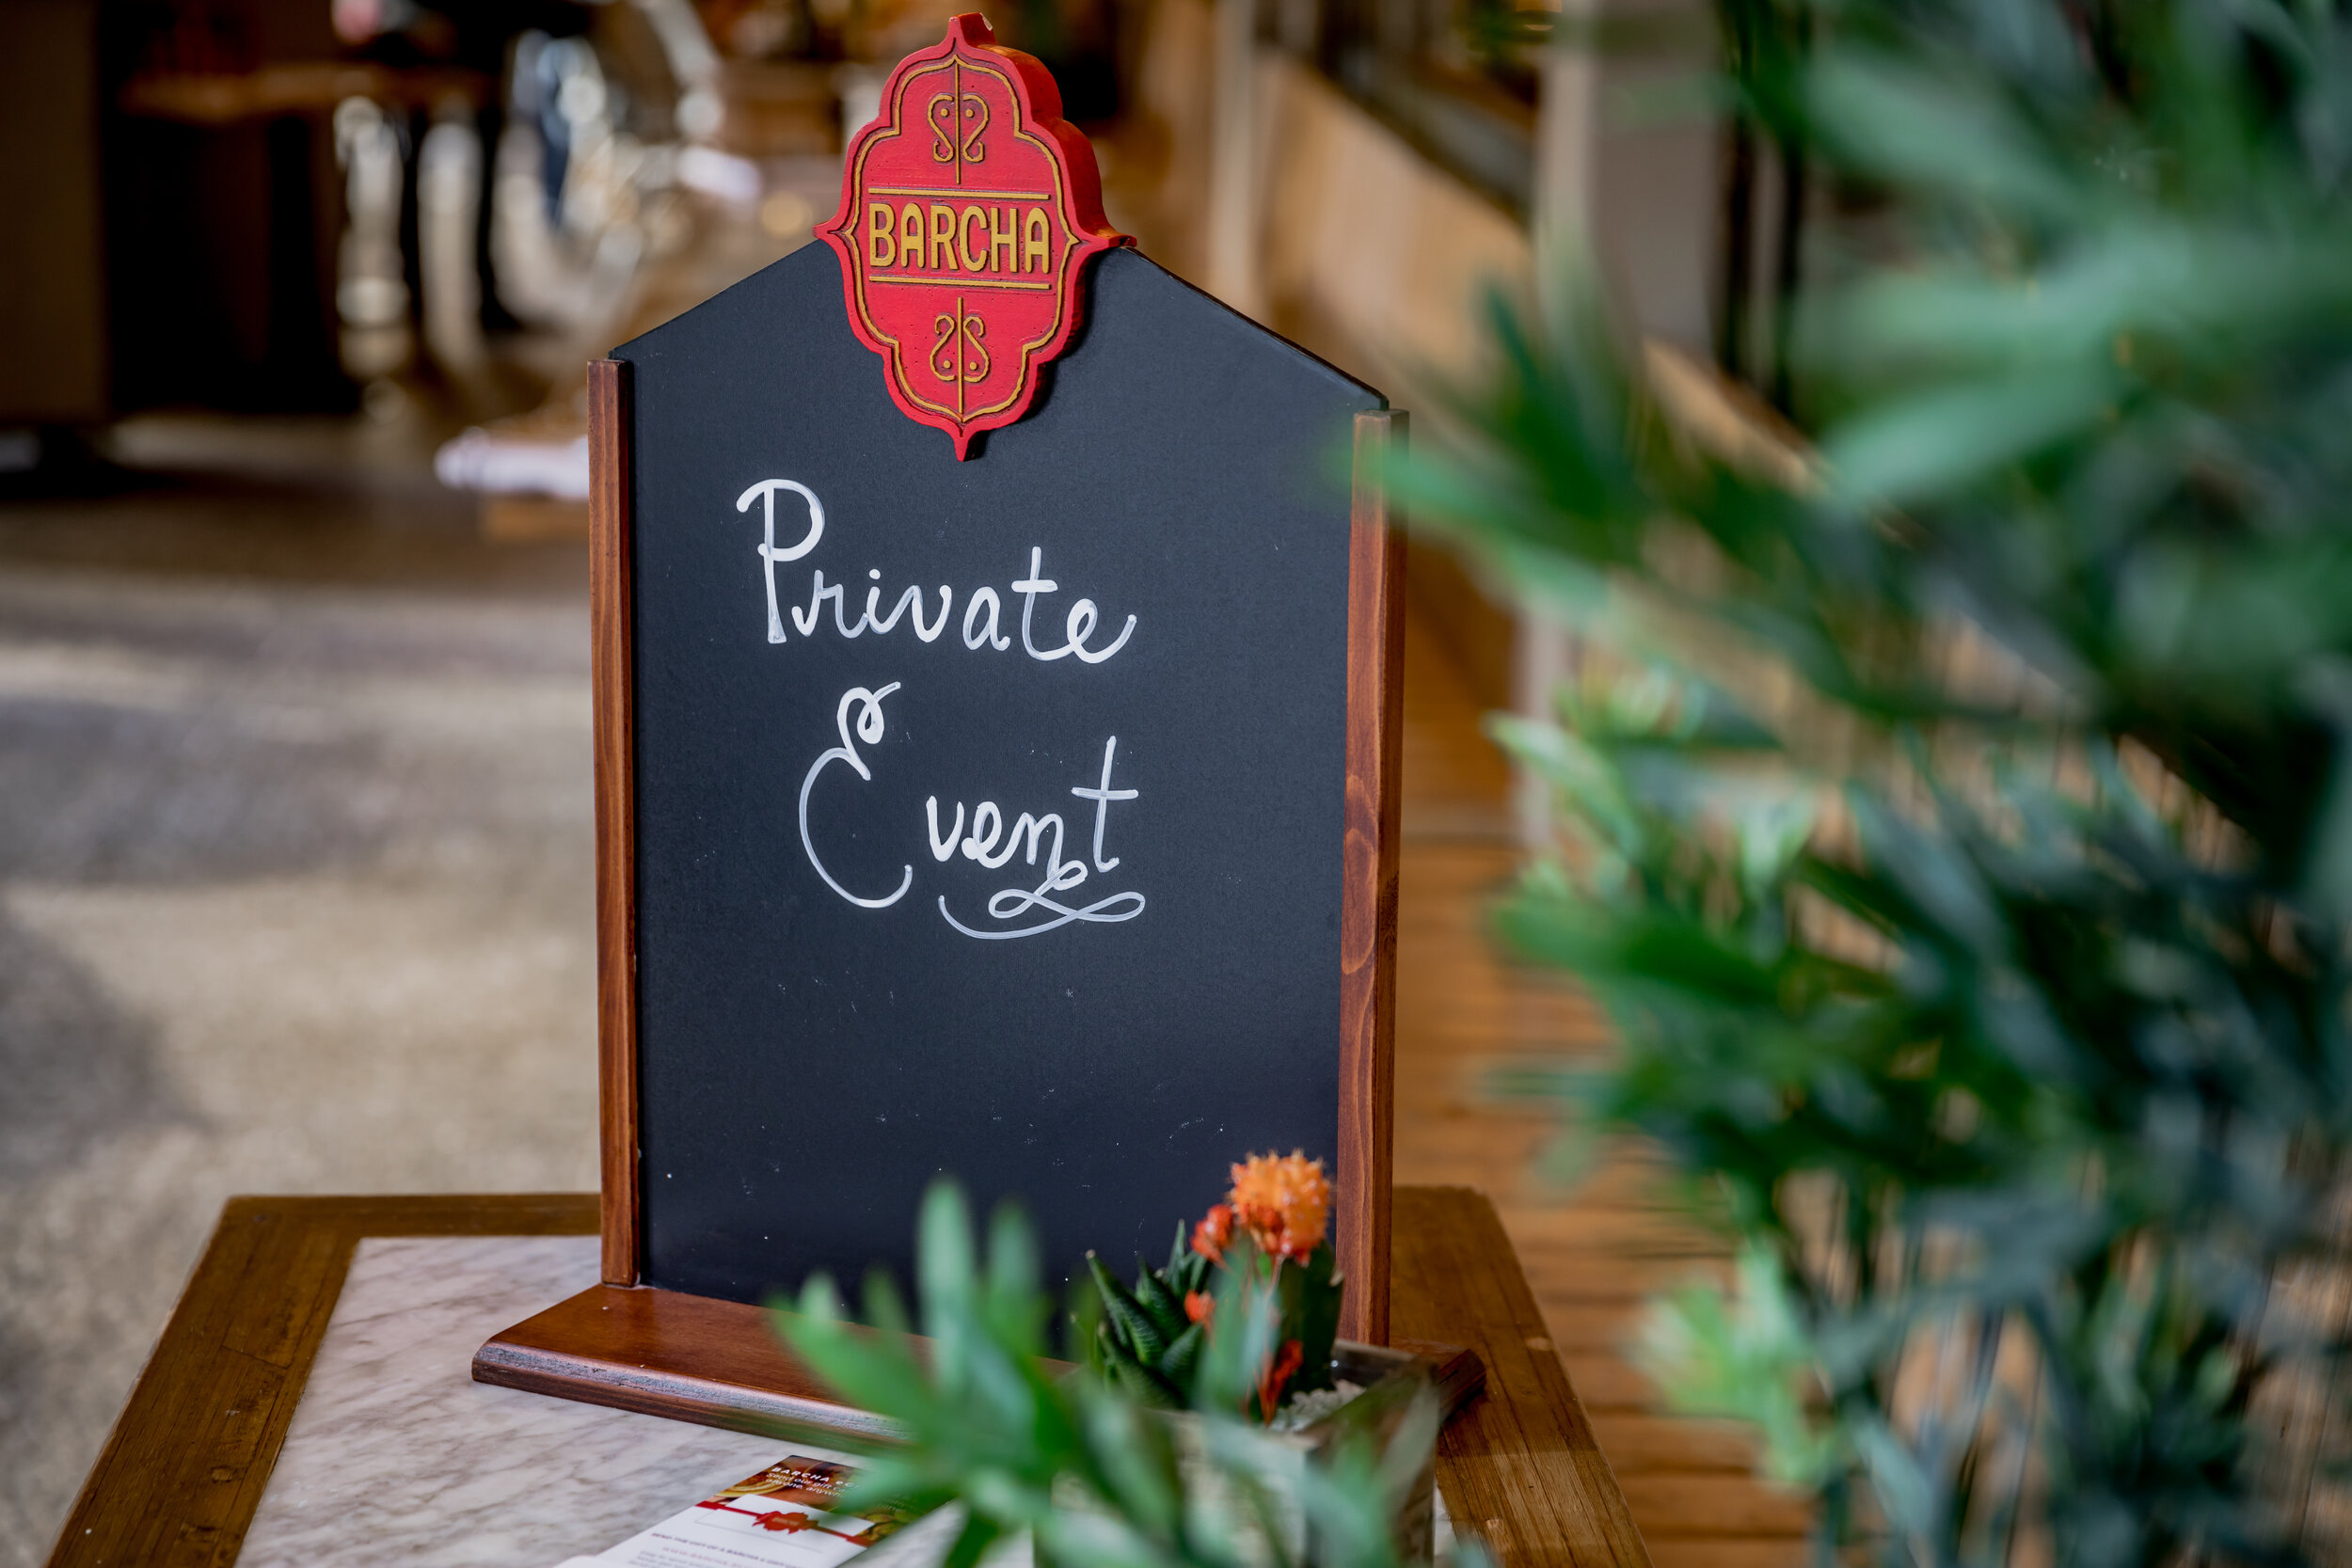 BARCHA
Private
Event
BARCHA